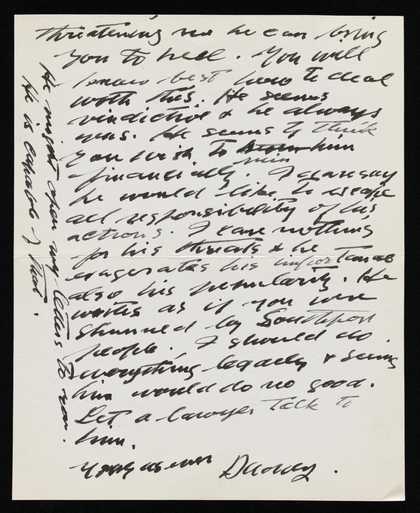 threatening me he can bring
you to heel. You will
know best how to deal
with this. He seems
vindictive & he always
was. He seems to think
you wish to him
ruin
financially. I daresay
he would like to escape
all responsibility of his
actions. I care nothing
for his threats & he
exagerates his importance
also his popularity. He
writes as if you were
shunned by Southport
people. I should do
everything legally & seeing
him would do no good.
Let a lawyer talk to
him.
Yours as ever
He might open my letters to you.
He is capable of that.